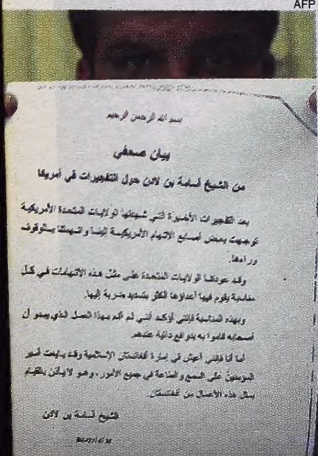 AFP
بسم الله الرحمن الرحيم
بيان صحفي
من الشيخ أسامة بن لادن حول التفجيرات في أمريكا
بعد التفجيرات الأخيرة التي شهدتها الولايات المتحدة الأمريكية
توجهت بعض أصابع الاتهام الأمريكية إلينا واتهمتنا بالوقوف
وراءها.
وقد عودتنا الولايات المتحدة على مثل هذه الاتهامات في كل
مناسبة يقوم فيها أعداؤها الكثر بتسديد ضربة إليها.
وبهذه المناسبة فإنني أؤكد أنني لم أقم بهذا العمل الذي يبدو أن
أصحابه قاموا به بدوافع ذاتية عندهم.
أما أنا فإنني أعيش في إمارة أفغانستان الإسلامية وقد بايعت أمير
المؤمنين على السمع والطاعة في جميع الأمور، وهو لا يأذن بالقيام
بمثل هذه الأعمال من أفغانستان.
الشيخ أسامة بن لادن